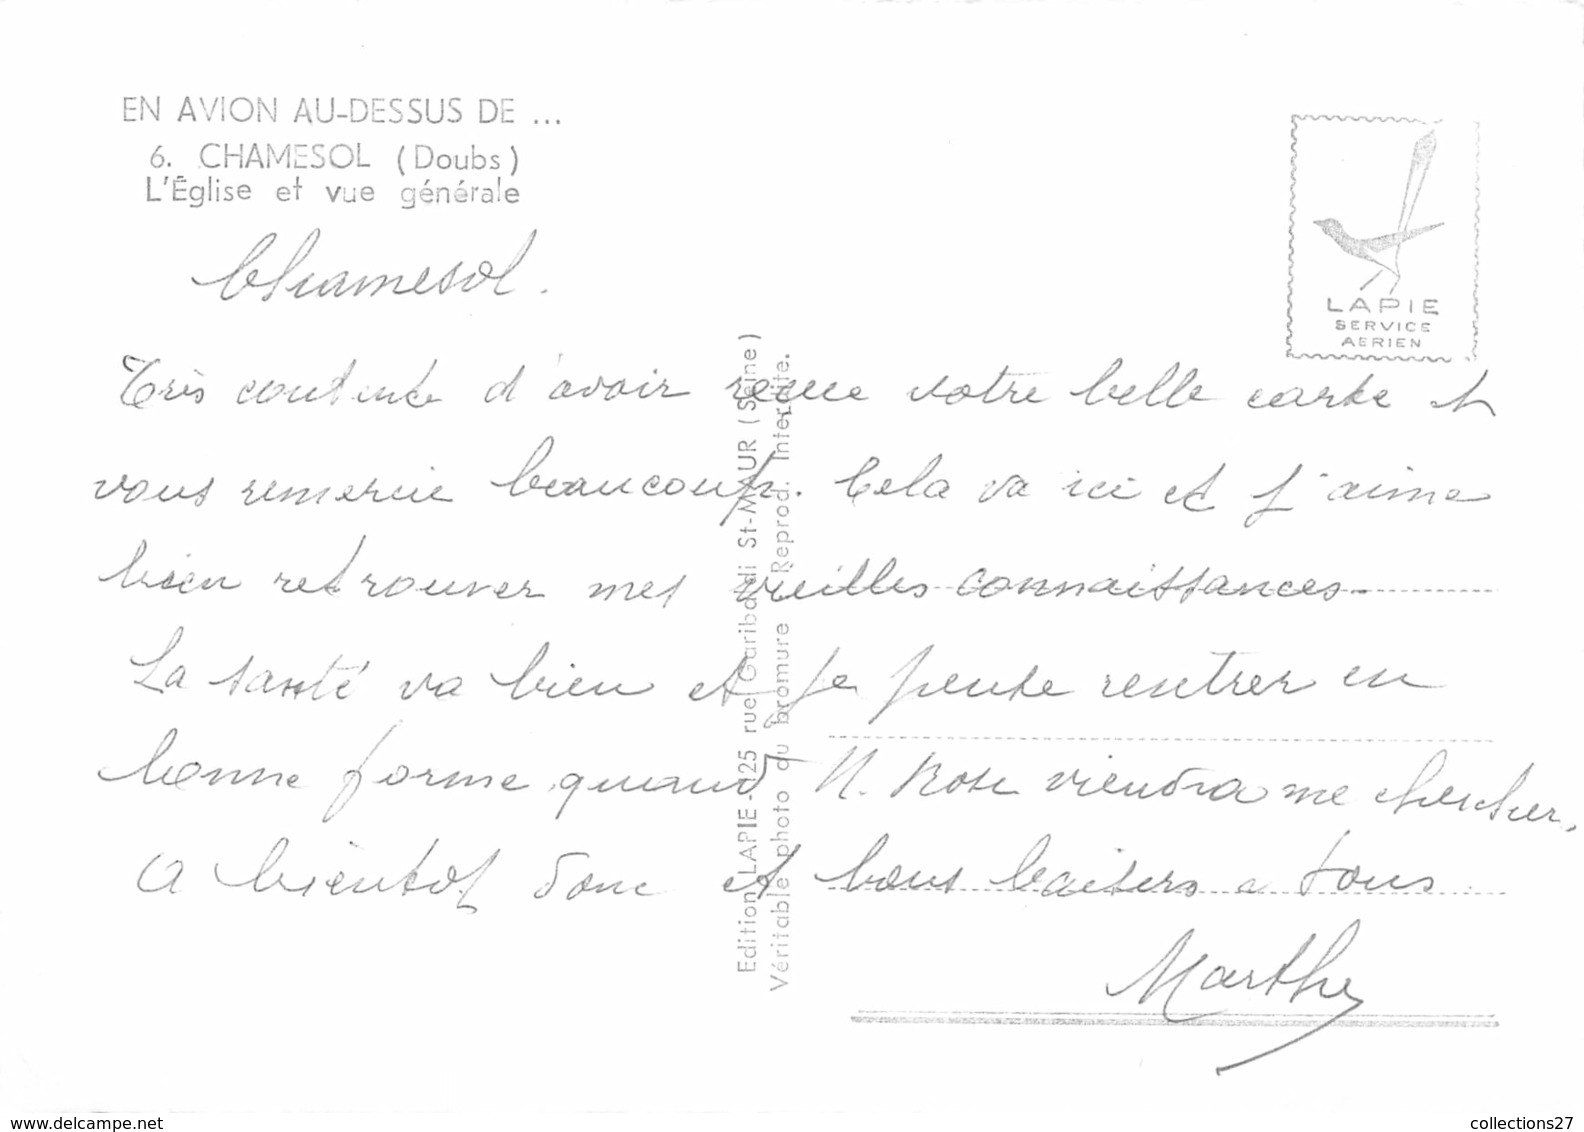 EN AVION AU-DESSUS DE ...
6. CHAMESOL (Doubs)
L'Église et vue générale
LAPIE
SERVICE
AERIEN
Chamesol.
Très contente d'avoir reçue votre belle carte et
vous remercie beaucoup. Cela va ici et j'aime
bien retrouver mes vieilles connaissances.
La santé va bien et je pense rentrer en
bonne forme quand M. Rose viendra me chercher.
A bientot donc et bons baisers a tous
Marthe
Edition LAPIE - 125 rue Garibaldi St-MAUR (Seine)
Véritable photo au bromure Reprod. Interdite.
delcampe.net
collections27